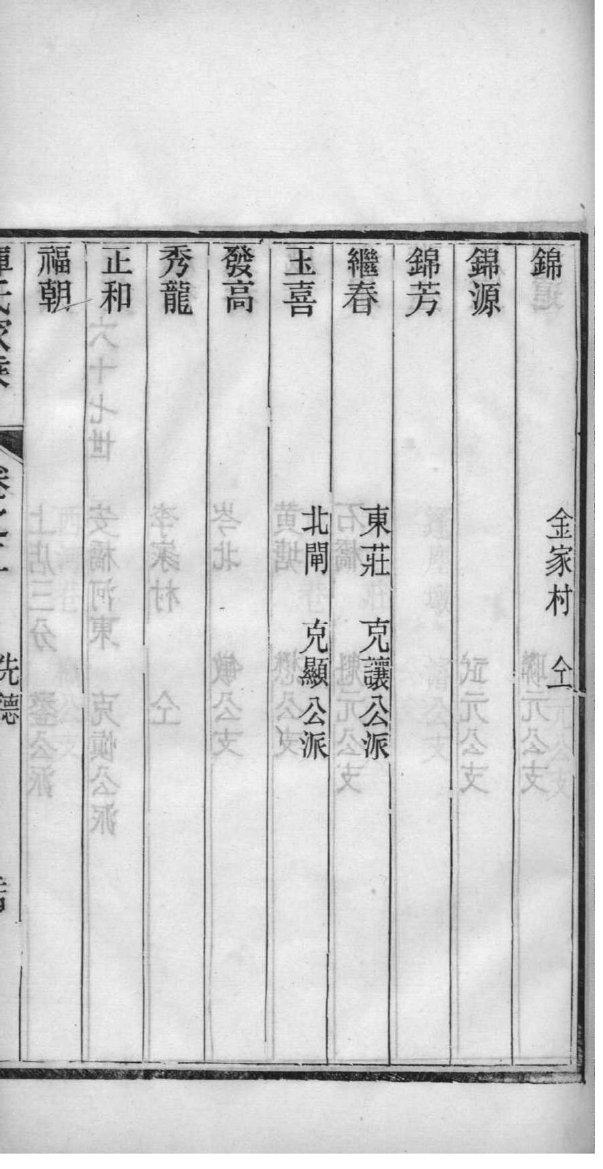 錦 金家村 仝
錦源
錦芳
繼春 東莊 克讓公派
玉喜 北閘 克顯公派
發高
秀龍
正和
福朝
先德